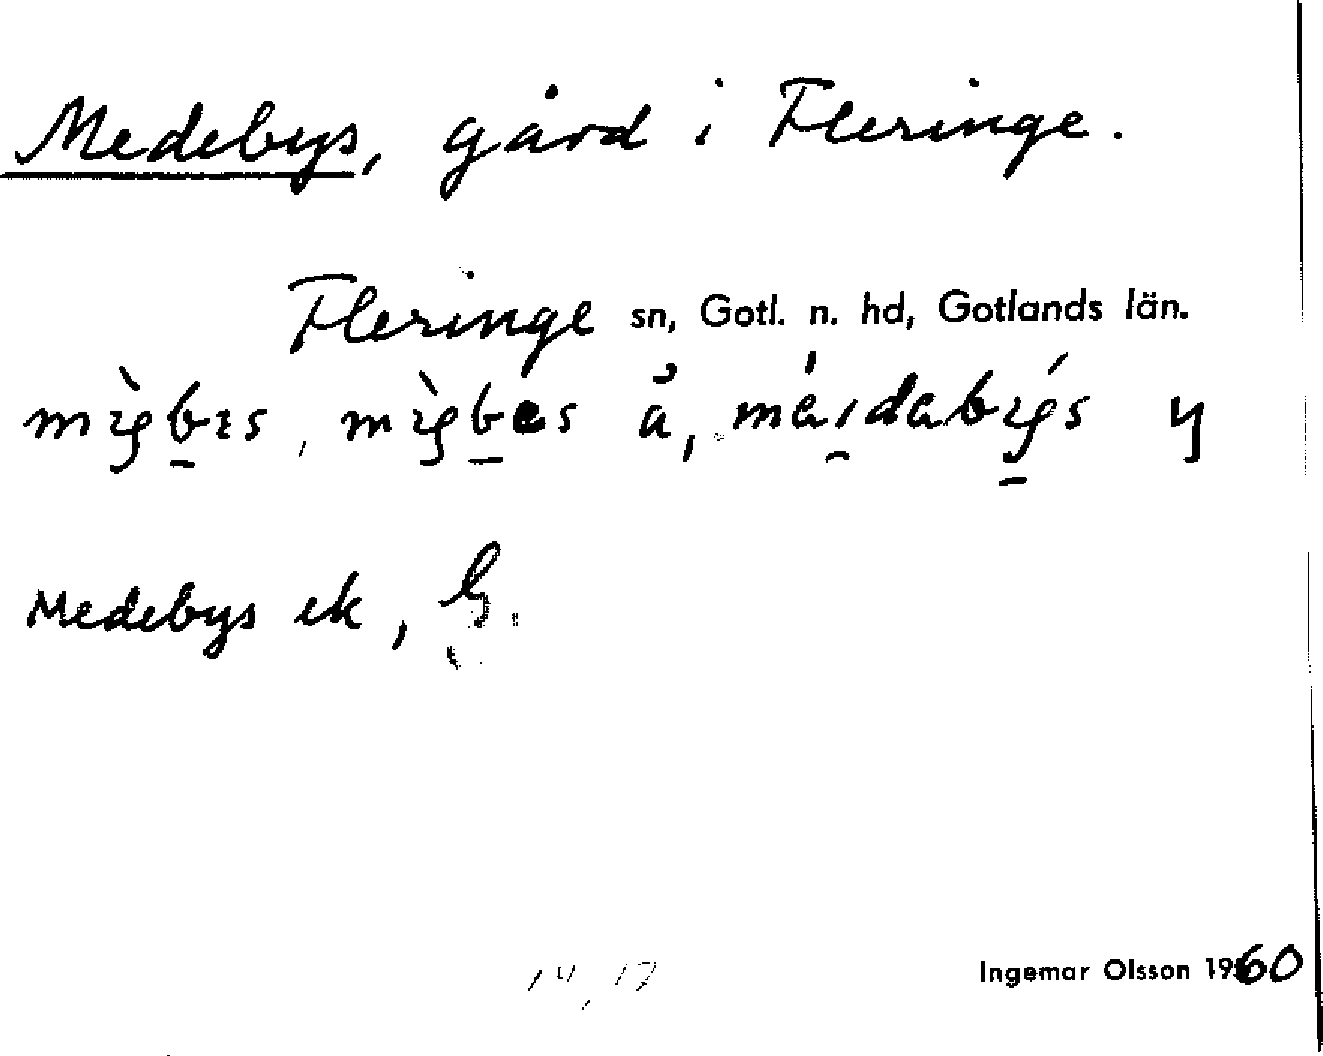 Medebys, gård i Fleringe.
Fleringe sn, Gotl. n. hd, Gotlands län.
å, y
Medebys ek,
14, 17
Ingemar Olsson 1960